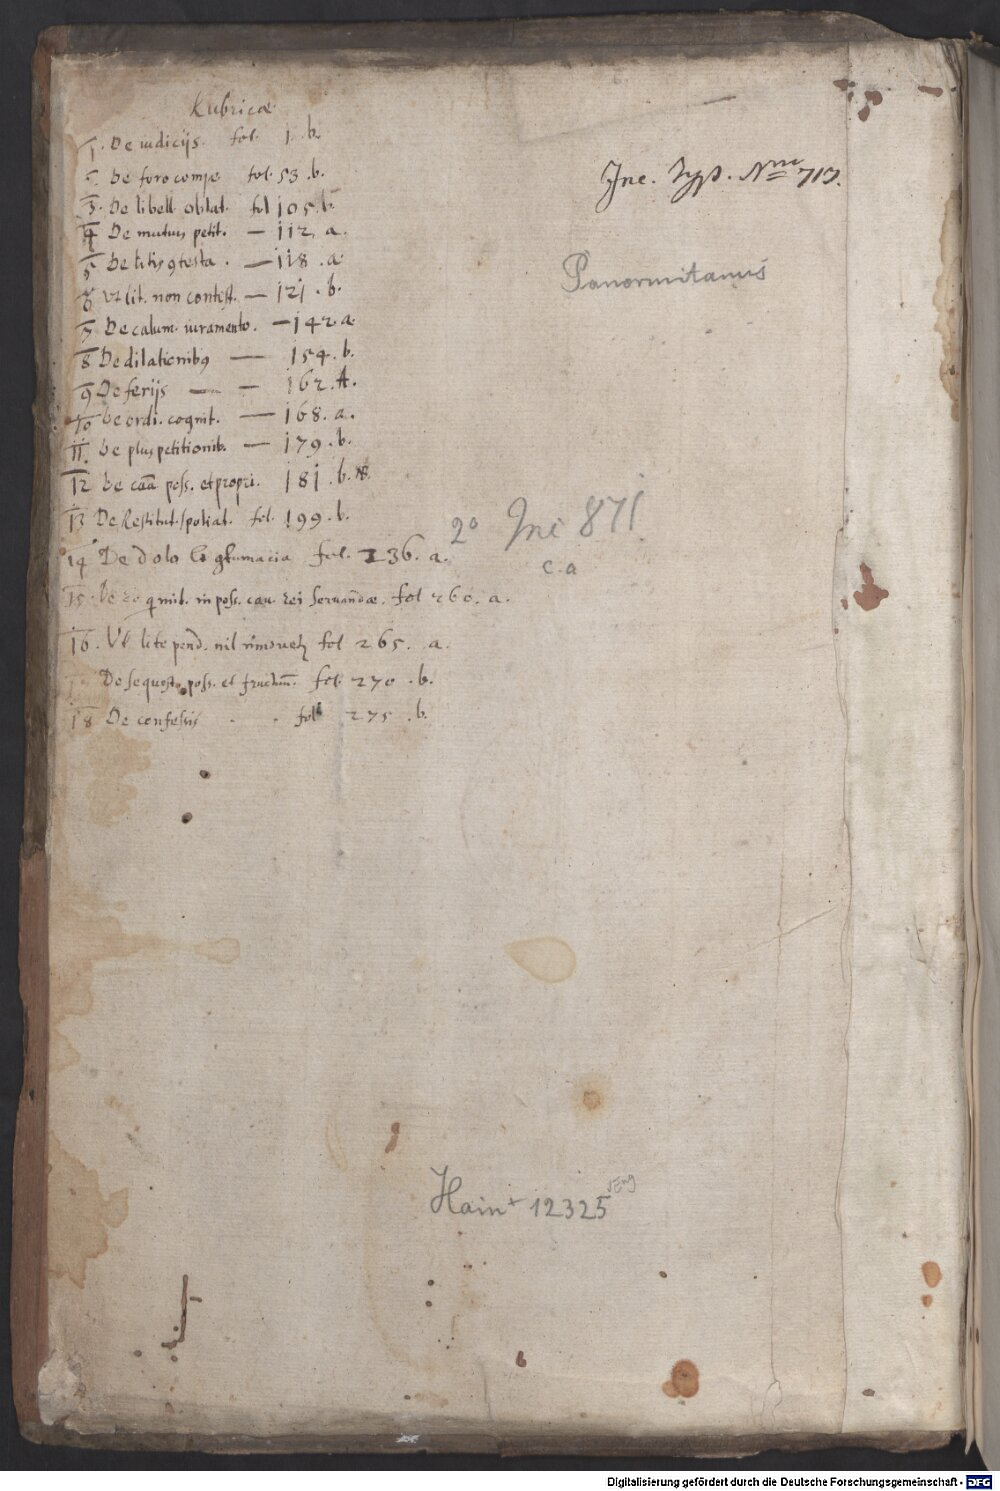 Rubricae
1. De iudicijs. fol. 1. b.
2 De foro compe fol. 53. b.
3. De libell. oblat. fol 105. b.
4 De mutuis petit. — 112. a.
5 De litis 9testa. — 118. a.
6 Vt lit. non contest. — 121. b.
7 De calum. iuramento. — 142. a.
8 De dilationib9 — 154. b.
9 De ferijs — — 162. A.
10 De ordi. cognit. — 168. a.
11. De plus petitionib. — 179. b.
12 De caā poss. et propri. 181. b.
13 De Restitut. spoliat. fol. 199. b.
14 De dolo & 9tumacia fol. 236. a.
15. in poss. cau. rei servandae. fol 260. a.
16. Vt lite pend. nil fol 265. a.
De sequest. poss. et fructuu. fol. 270. b.
18 De confessis . . fol 275. b.
Inc. Typ. Nm 713.
Panormitanus
2° Inc 871
c. a
Hain+ 12325
Digitalisierung gefördert durch die Deutsche Forschungsgemeinschaft - DFG